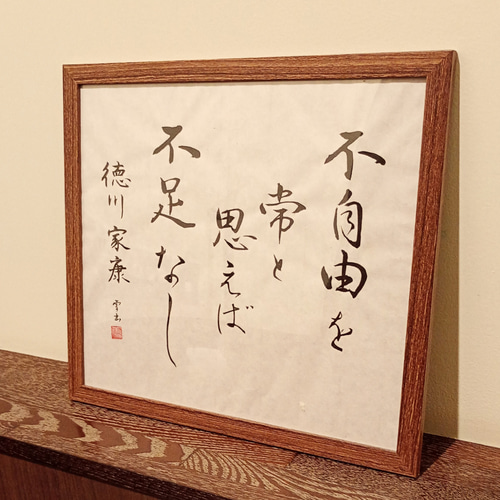 不自由を
常と
思えば
不足なし
徳川家康